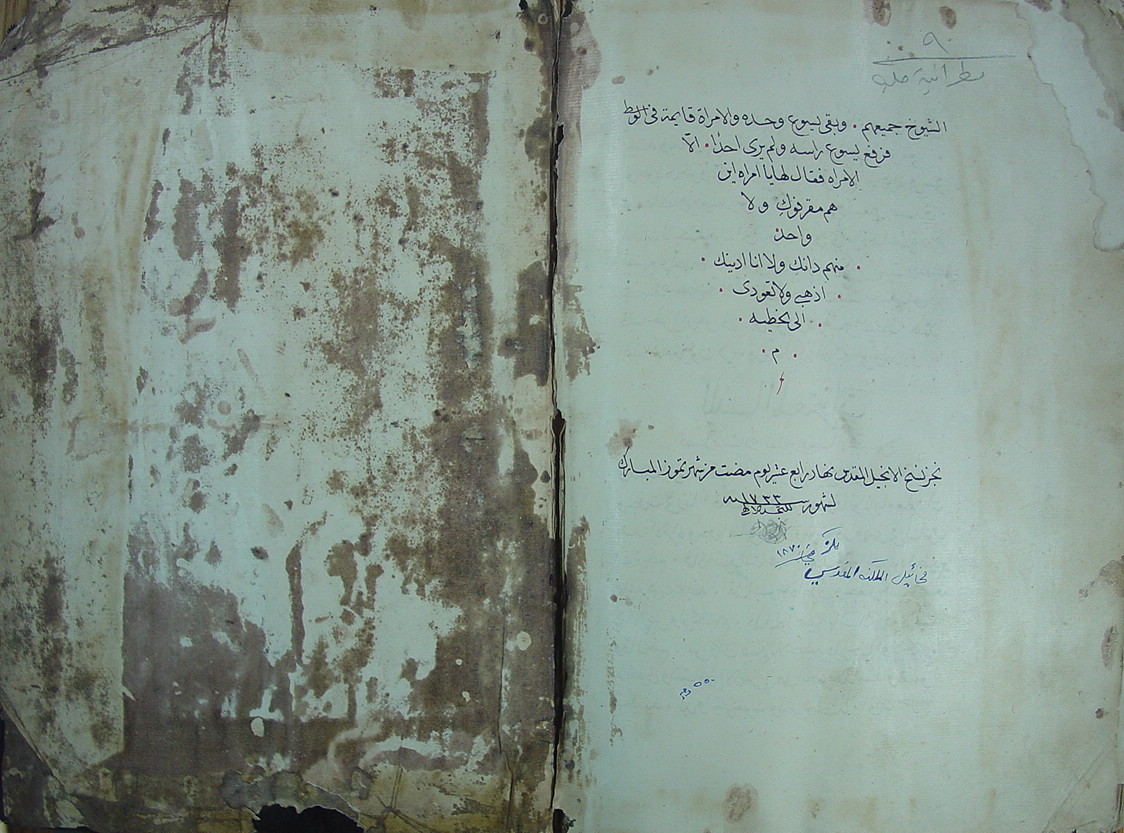 ٩
مطرانية حلب
الشيوخ جميعهم . وبقى يسوع وحده والامراة قايمة فى الوسط
فرفع يسوع راسه ولم يرى احدًا . الّا
الامراه فقال لها يا امراه اين
هم مقرفوكِ ولا
واحد
منهم دانك ولا انا ادينك .
اذهبى ولا تعودى .
الى الخطيه .
م
نجز نسخ الانجيل المقدس نهار رابع عشر يوم مضت من شهر تموز المبارك
لشهور سنة ١٧٣٣
١٨٧٠
المقدسي